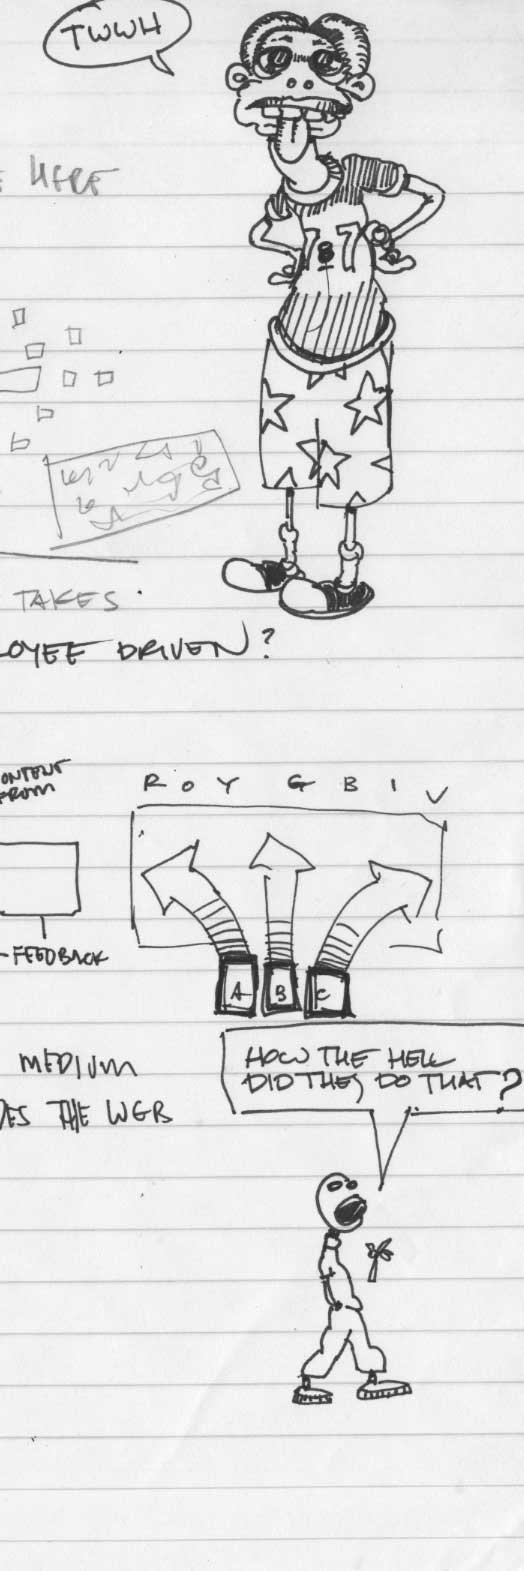 TWWH
HERE
787
TAKES
OYEE DRIVEN?
ONTENT
FROM
R O Y G B I V
-FEEDBACK
A B C
MEDIUM
DES THE WEB
HOW THE HELL
DID THEY DO THAT?